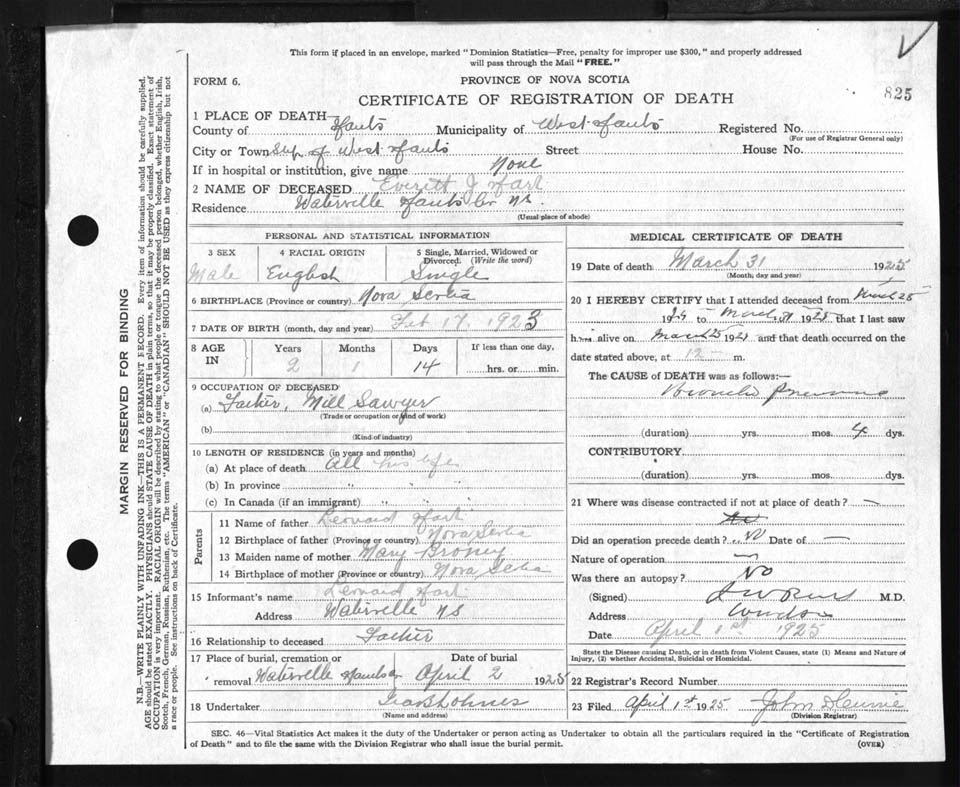 This form if placed in an envelope, marked "Dominion Statistics—Free, penalty for improper use $300," and properly addressed
will pass through the Mail "FREE."
FORM 6.
PROVINCE OF NOVA SCOTIA
825
CERTIFICATE OF REGISTRATION OF DEATH
1 PLACE OF DEATH—
County of Hants Municipality of West Hants Registered No.
(For use of Registrar General only)
City or Town of West Hants Street House No.
If in hospital or institution, give name None
2 NAME OF DECEASED Everett J Hart
Residence Waterville Hants Co NS.
(Usual place of abode)
PERSONAL AND STATISTICAL INFORMATION
3 SEX
Male
4 RACIAL ORIGIN
English
5 Single, Married, Widowed or
Divorced. (Write the word)
Single
6 BIRTHPLACE (Province or country) Nova Scotia
7 DATE OF BIRTH (month, day and year) Feb 17, 1923
8 AGE IN
Years Months Days If less than one day,
2 1 14 hrs. or min.
9 OCCUPATION OF DECEASED
(a) Father, Mill Sawyer
(Trade or occupation or kind of work)
(b)
(Kind of industry)
10 LENGTH OF RESIDENCE (in years and months)
(a) At place of death All his life
(b) In province " " "
(c) In Canada (if an immigrant) " " "
Parents
11 Name of father Leonard Hart
12 Birthplace of father (Province or country) Nova Scotia
13 Maiden name of mother Mary
14 Birthplace of mother (Province or country) Nova Scotia
15 Informant's name Leonard Hart
Address Waterville NS
16 Relationship to deceased Father
17 Place of burial, cremation or Date of burial
removal Waterville Hants Co April 2 1925
18 Undertaker
(Name and address)
MEDICAL CERTIFICATE OF DEATH
19 Date of death March 31 1925
(Month, day and year)
20 I HEREBY CERTIFY that I attended deceased from March 25
1925 to March 31 1925 that I last saw
him alive on March 25 1925 and that death occurred on the
date stated above, at 12 m.
The CAUSE of DEATH was as follows:—
Broncho pneumonia
(duration) yrs. mos. 4 dys.
CONTRIBUTORY
(duration) yrs. mos. dys.
21 Where was disease contracted if not at place of death? —
Did an operation precede death? No Date of —
Nature of operation —
Was there an autopsy? No
(Signed) M.D.
Address Windsor
Date April 1st 1925
State the Disease causing Death, or in death from Violent Causes, state (1) Means and Nature of
Injury, (2) whether Accidental, Suicidal or Homicidal.
22 Registrar's Record Number
23 Filed April 1st 1925 John
(Division Registrar)
SEC. 46—Vital Statistics Act makes it the duty of the Undertaker or person acting as Undertaker to obtain all the particulars required in the "Certificate of Registration
of Death" and to file the same with the Division Registrar who shall issue the burial permit. (OVER)
MARGIN RESERVED FOR BINDING
N.B.—WRITE PLAINLY WITH UNFADING INK—THIS IS A PERMANENT RECORD. Every item of information should be carefully supplied.
AGE should be stated EXACTLY. PHYSICIANS should STATE CAUSE OF DEATH in plain terms, so that it may be properly classified. Exact statement of
OCCUPATION is very important. RACIAL ORIGIN will be described by stating to what people or tongue the deceased person belonged, whether English, Irish,
Scotch, French, German, Russian, Ruthenian, etc. The terms "AMERICAN" or "CANADIAN" SHOULD NOT BE USED as they express citizenship but not
a race or people. See instructions on back of Certificate.